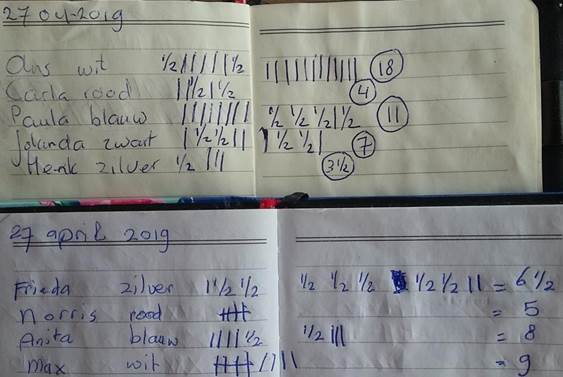 27 04-2019
Ans wit ½ ||||| ½ |||||||||||| 18
Carla rood || ½ | ½ 4
Paula blauw |||||||| ½ ½ ½ | ½ 11
Jolanda zwart | ½ ½ || | ½ ½ | 7
Henk zilver ½ ||| 3½
27 april 2019
Frieda zilver | ½ ½ ½ ½ ½ ½ ½ || = 6 ½
Norris rood 卌 = 5
Anita blauw |||| ½ ½ ||| = 8
Max wit 卌 |||| = 9